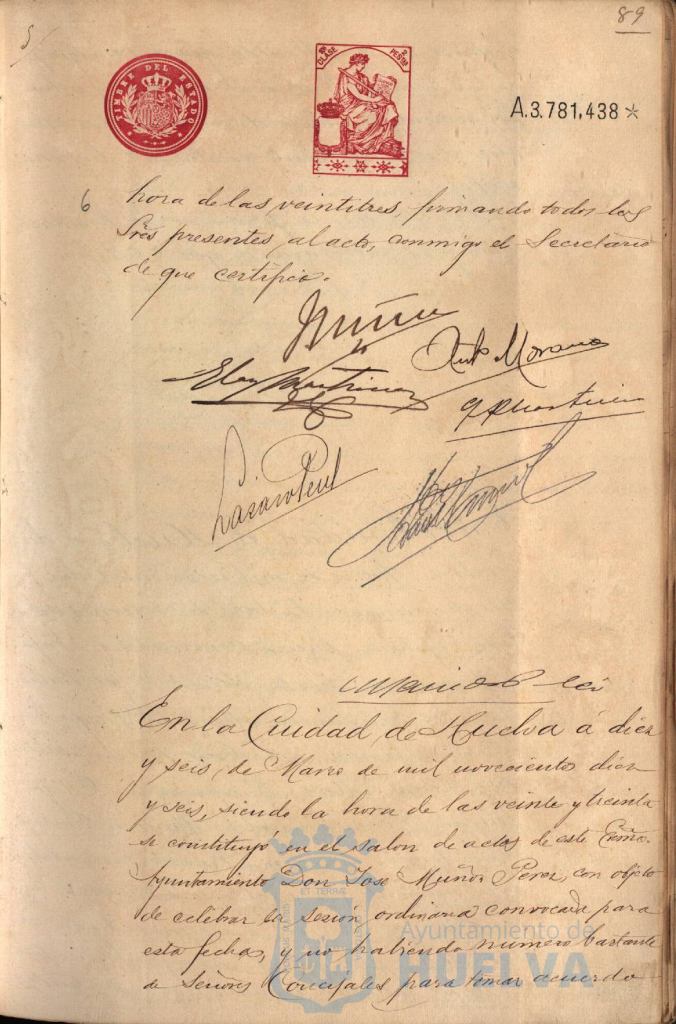 89
TIMBRE DEL ESTADO
CLASE
2 PESTAS
A.3.781,438*
6 hora de las veintitres, firmando todos los
Sres presentes, al acto, conmigo el Secretario
de que certifico.
Muñoz
Anto Morano
Eloy Martinez
Lazaro Perul
En la Ciudad, de Huelva á diez
y seis, de Marzo de mil novecientos diez
y seis, siendo la hora de las veinte y treinta
se constituyó en el salon de actos de este Exmo.
Ayuntamiento Don Jose Muñoz Perez, con objeto
de celebrar la sesión ordinaria convocada para
esta fecha, y no habiendo numero bastante
de Señores Concejales para tomar acuerdo
Ayuntamiento de
HUELVA